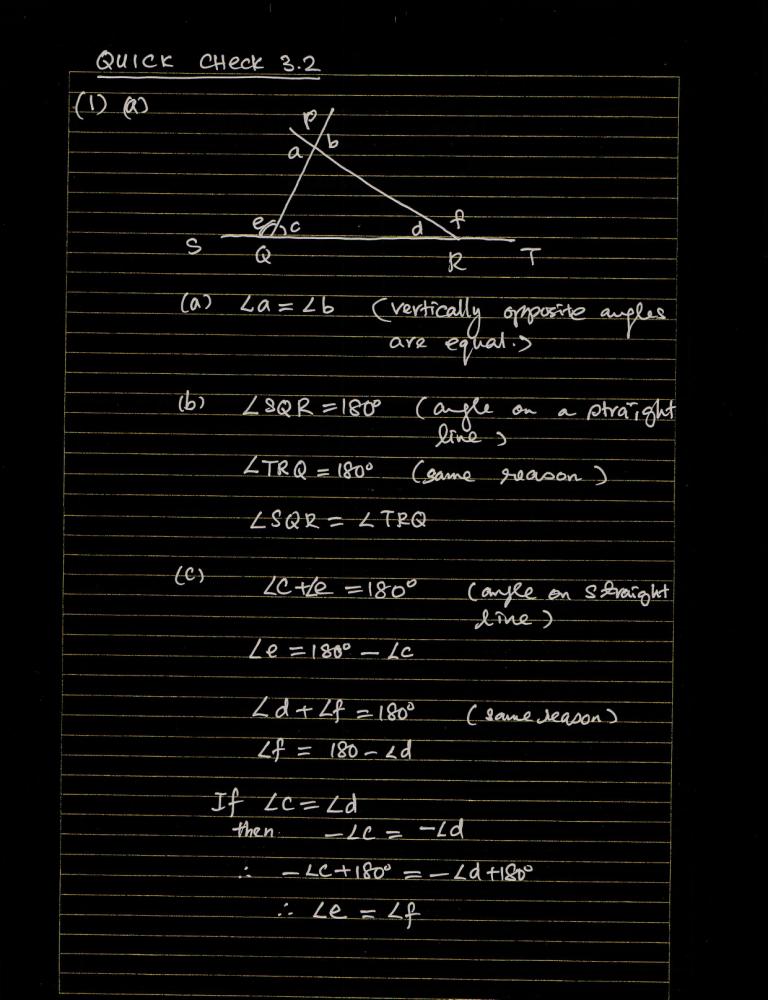 QUICK CHECK 3.2
(1) (a)
P
a b
e c d f
S Q R T
(a) ∠a = ∠b (vertically opposite angles
are equal.)
(b) ∠SQR = 180° (angle on a straight
line)
∠TRQ = 180° (same reason)
∠SQR = ∠TRQ
(c) ∠c+∠e = 180° (angle on straight
line)
∠e = 180° – ∠c
∠d + ∠f = 180° (same reason)
∠f = 180 – ∠d
If ∠c = ∠d
then –∠c = –∠d
∴ –∠c+180° = –∠d+180°
∴ ∠e = ∠f